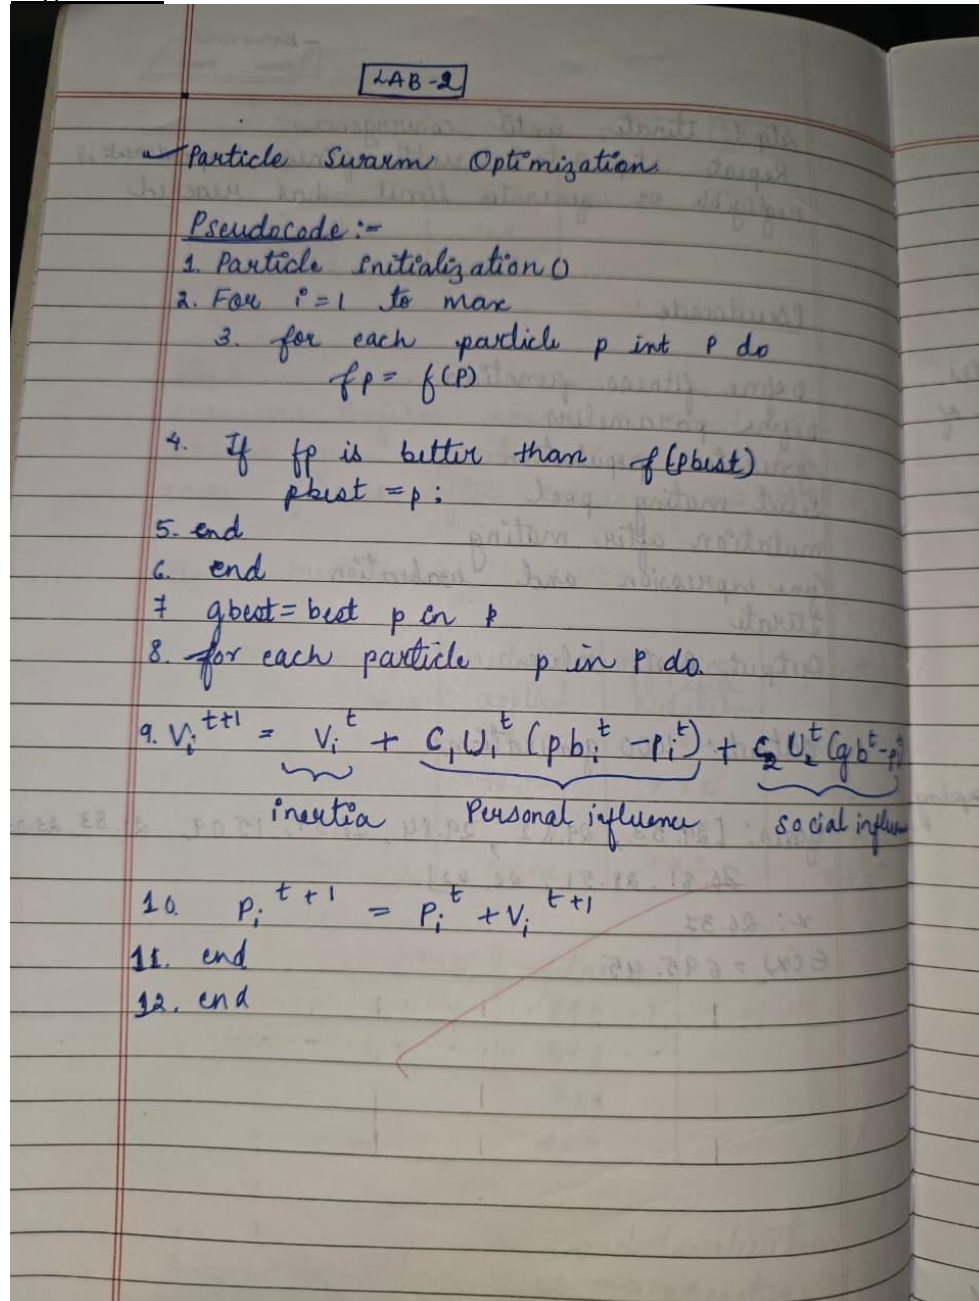 LAB-2
Particle Swarm Optimization
Pseudocode :-
1. Particle initialization()
2. For i=1 to max
3. for each particle p int P do
fp = f(P)
4. If fp is better than f(pbest)
pbest = p;
5. end
6. end
7 gbest = best p in P
8. for each particle p in P do.
9. Vᵢᵗ⁺¹ = Vᵢᵗ + C₁U₁ᵗ (pbᵢᵗ - pᵢᵗ) + C₂U₂ᵗ (gbᵗ - pᵢ
inertia Personal influence social influen
10. Pᵢᵗ⁺¹ = Pᵢᵗ + Vᵢᵗ⁺¹
11. end
12. end